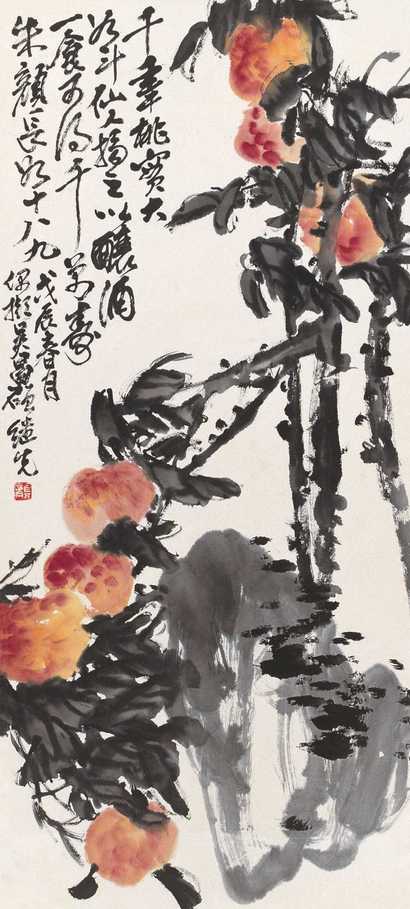 千年桃實大
如斗仙人摘之以釀酒
一食可得千萬壽
朱顏長如十八九
戊辰春月
偶擬吳昌碩 繼先